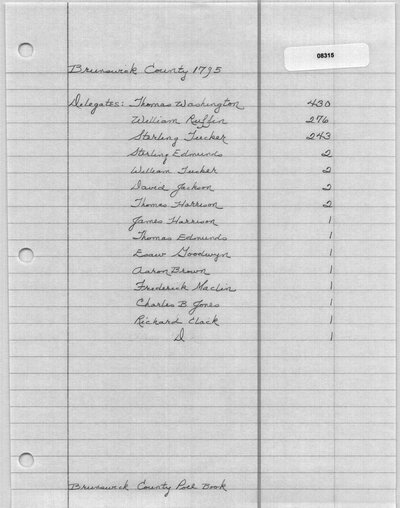 08315
Brunswick County 1795
Delegates: Thomas Washington 430
William Ruffin 276
Sterling Tucker 243
Sterling Edmunds 2
William Tucker 2
David Jackson 2
Thomas Harrison 2
James Harrison 1
Thomas Edmunds 1
Esaw Goodwyn 1
Aaron Brown 1
Frederick Maclin 1
Charles B. Jones 1
Richard Clack 1
D 1
Brunswick County Poll Book